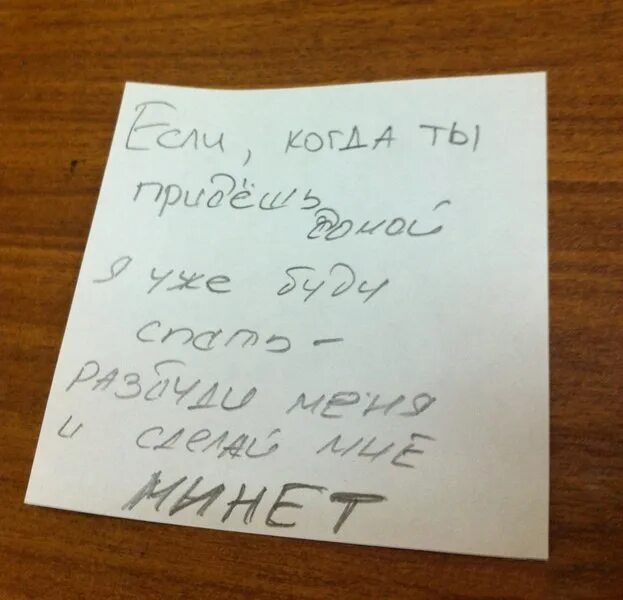 Если, когда ты
придёшь домой
я уже буду
спать -
разбуди меня
и сделай мне
МИНЕТ